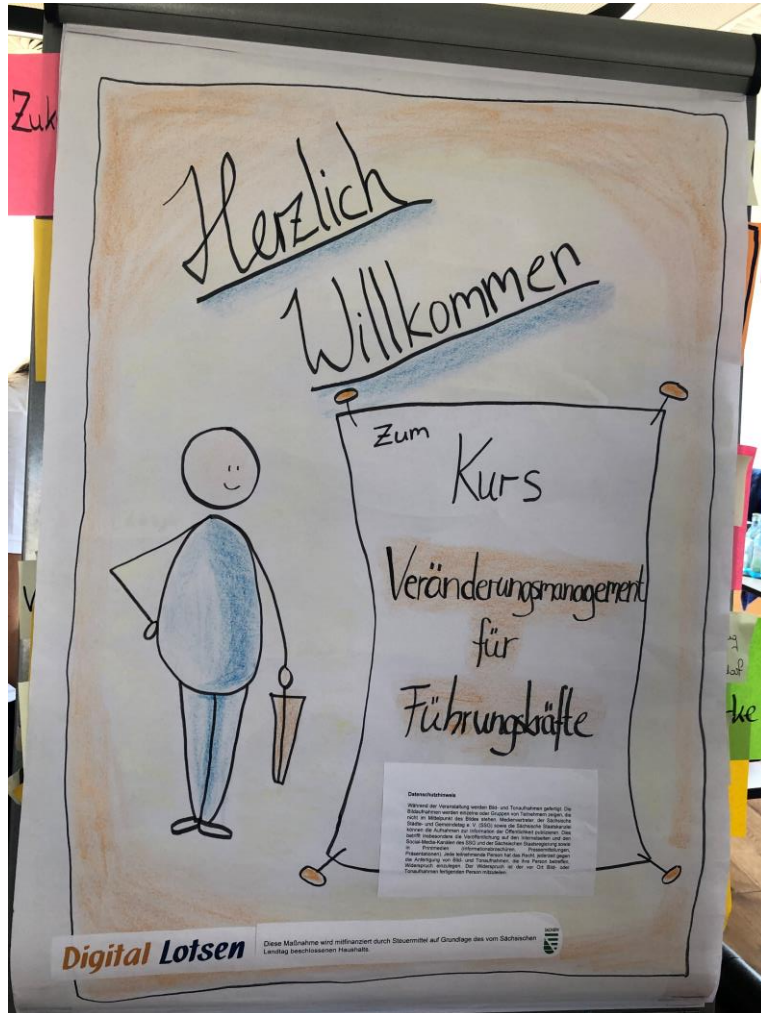 Zuk
Herzlich
Willkommen
Zum
Kurs
Veränderungsmanagement
für
Führungskräfte
Datenschutzhinweis
Während der Veranstaltung werden Bild- und Tonaufnahmen gefertigt. Die
Bildaufnahmen werden einzelne oder Gruppen von Teilnehmern zeigen, die
nicht im Mittelpunkt des Bildes stehen. Medienvertreter, der Sächsische
Städte- und Gemeindetag e. V. (SSG) sowie die Sächsische Staatskanzlei
können die Aufnahmen zur Information der Öffentlichkeit publizieren. Dies
betrifft insbesondere die Veröffentlichung auf den Internetseiten und den
Social-Media-Kanälen des SSG und der Sächsischen Staatsregierung sowie
in Printmedien (Informationsbroschüren, Pressemitteilungen,
Präsentationen). Jede teilnehmende Person hat das Recht, jederzeit gegen
die Anfertigung von Bild- und Tonaufnahmen, die ihre Person betreffen,
Widerspruch einzulegen. Der Widerspruch ist der vor Ort Bild- oder
Tonaufnahmen fertigenden Person mitzuteilen.
Digital Lotsen
Diese Maßnahme wird mitfinanziert durch Steuermittel auf Grundlage des vom Sächsischen
Landtag beschlossenen Haushalts.